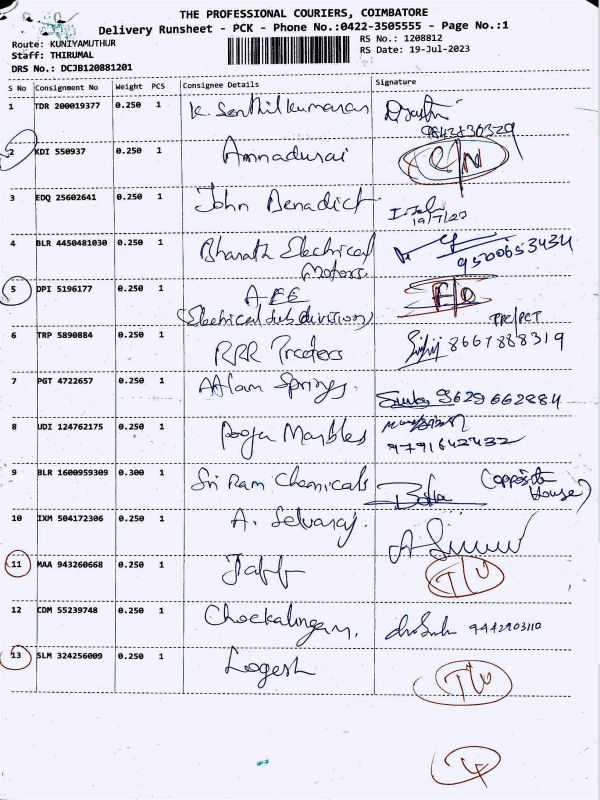 THE PROFESSIONAL COURIERS, COIMBATORE
Delivery Runsheet - PCK - Phone No.:0422-3505555 - Page No.:1
Route: KUNIYAMUTHUR
RS No.: 1208812
Staff: THIRUMAL
RS Date: 19-Jul-2023
DRS No.: DCJB120881201
S No Consignment No Weight PCS Consignee Details Signature
1 TDR 200019377 0.250 1 K. Senthilkumaran
9842830329
2 KDI 550937 0.250 1 Annadurai
3 EDQ 25602641 0.250 1 John Benadict
19/7/23
4 BLR 4450481030 0.250 1 Bharath Electrical
Motors. 9500653434
5 DPI 5196177 0.250 1 AEE
(Electrical sub division)
6 TRP 5890884 0.250 1 RRR Traders 8667888319
7 PGT 4722657 0.250 1 Springs. 9629662884
8 UDI 124762175 0.250 1 Pooja Marbles
9791642432
9 BLR 1600959309 0.300 1 Sri Ram Chemicals (opposite
House)
10 IXM 504172306 0.250 1 A. Selvaraj.
11 MAA 943260668 0.250 1
12 CDM 55239748 0.250 1 Chockalingam. 9442903110
13 SLM 324256009 0.250 1 Logesh